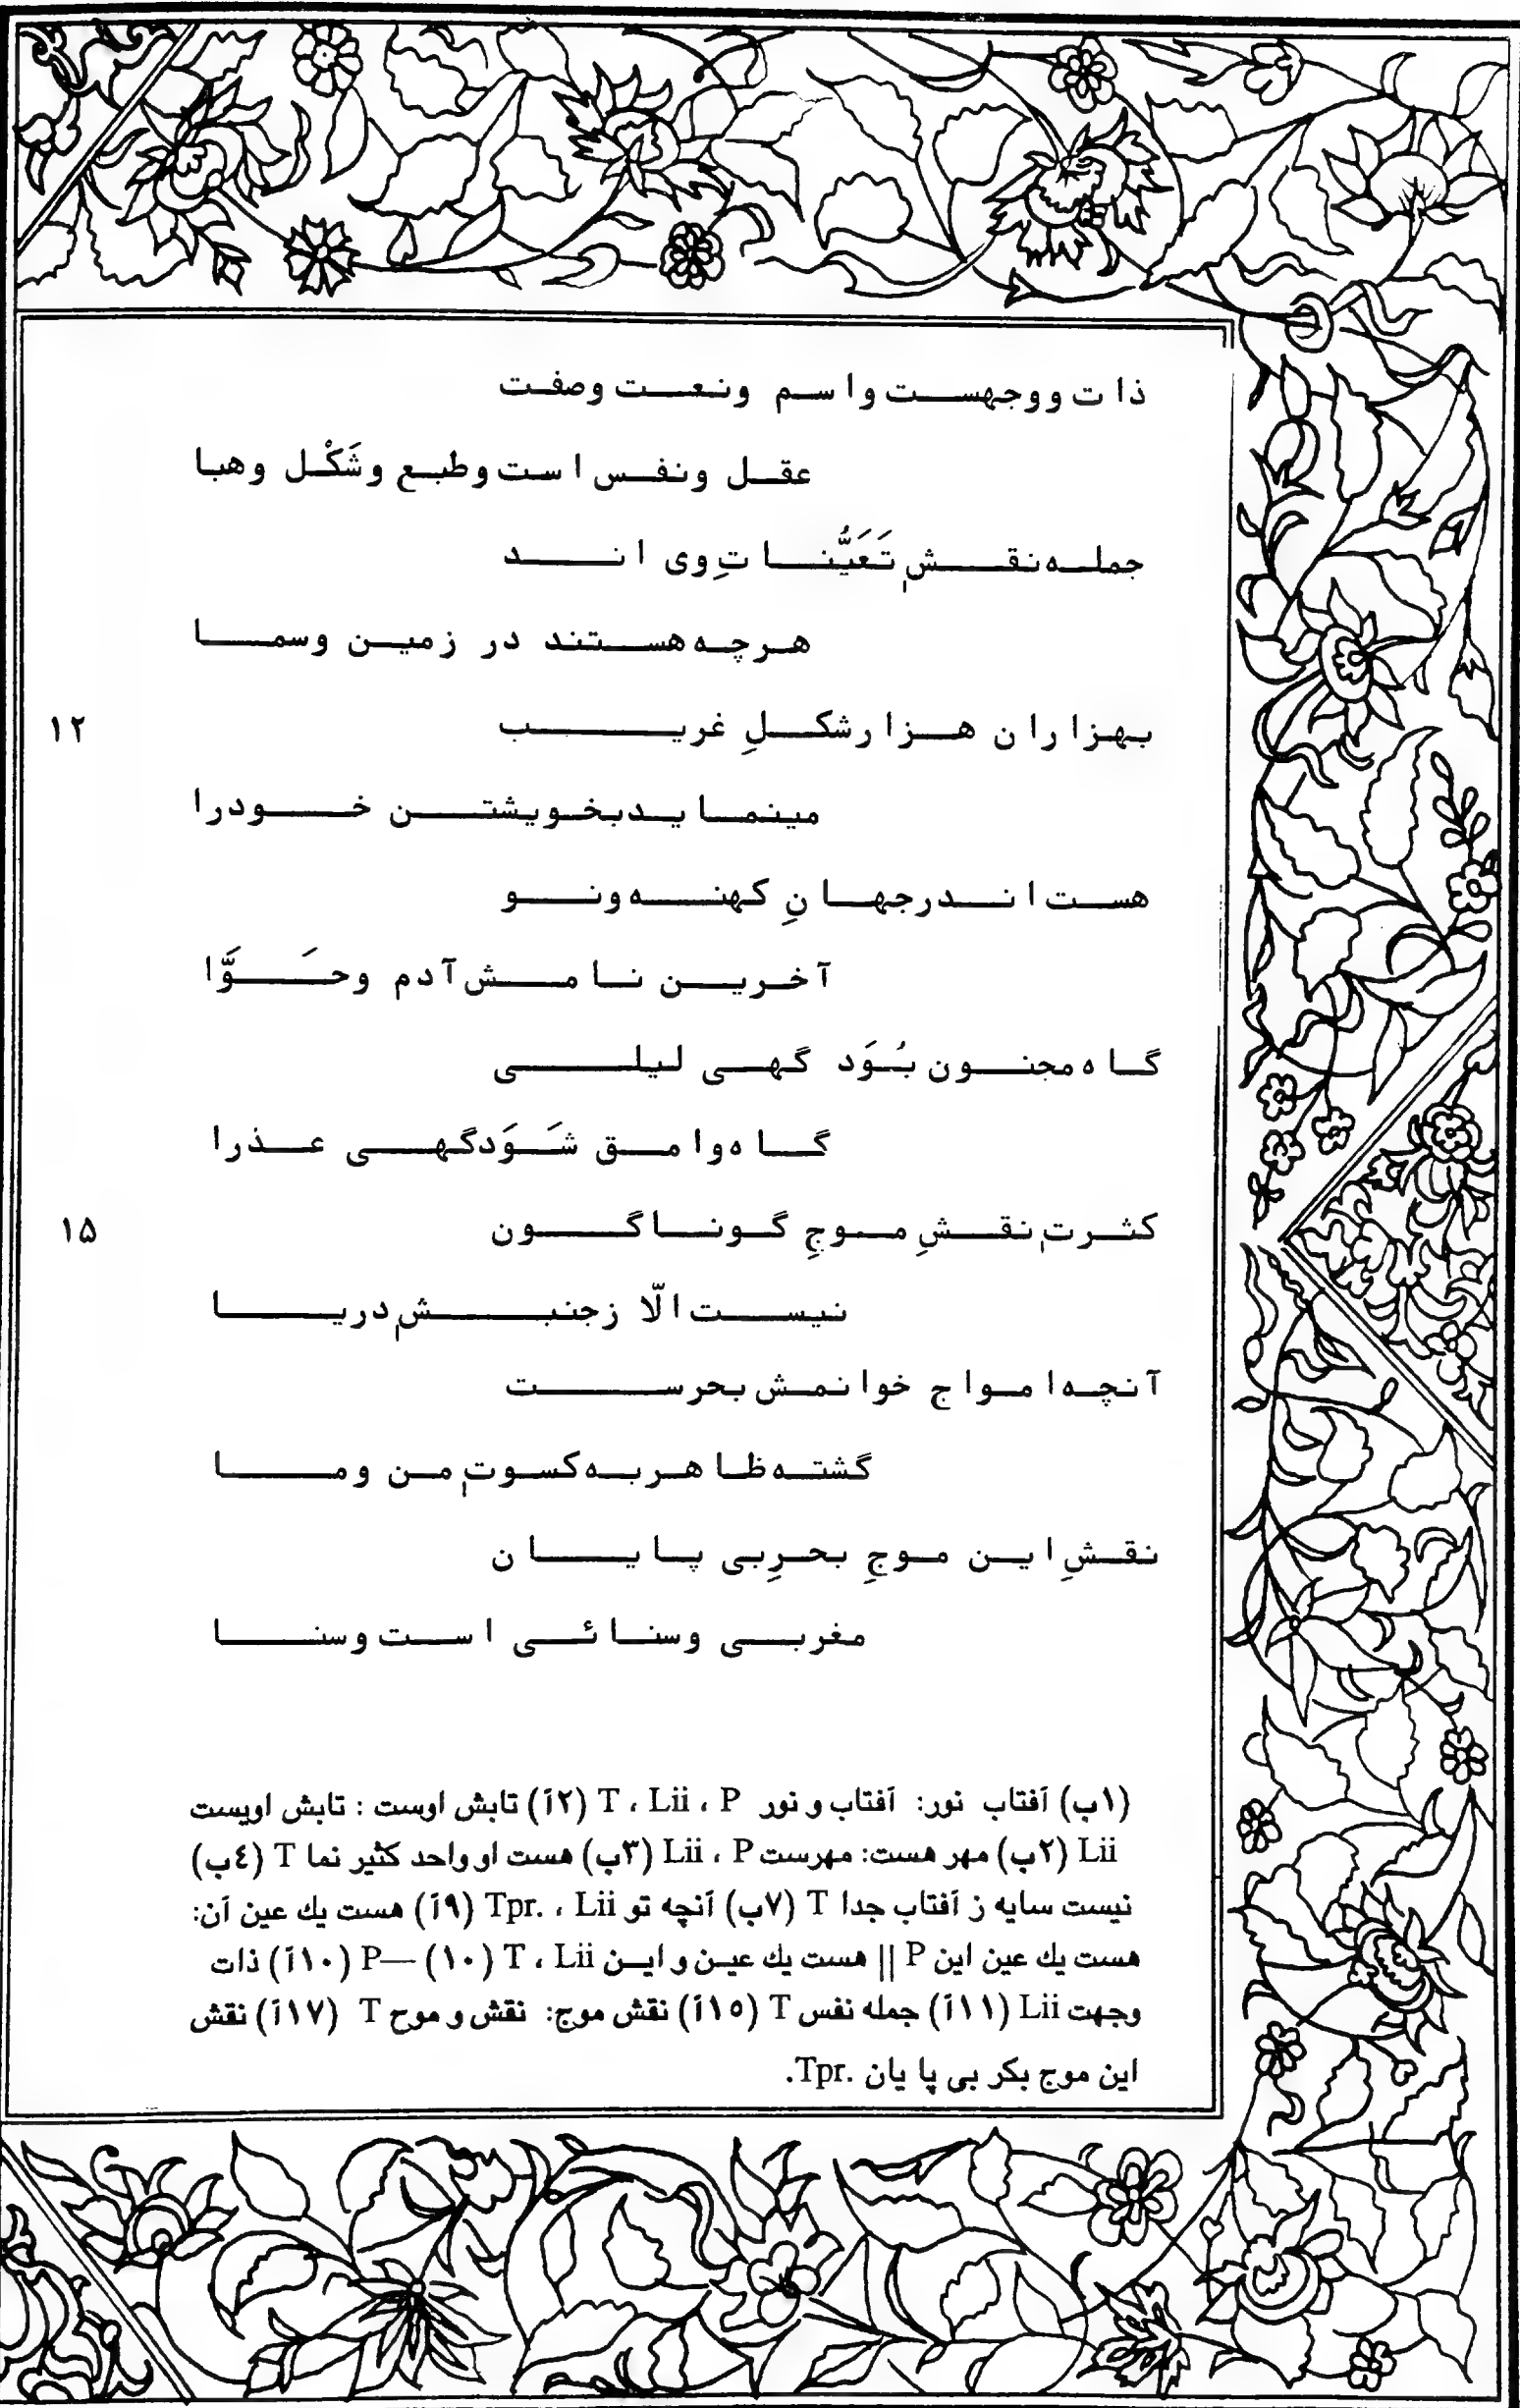 ذات ووجهست واسم ونعت وصفت
عقل ونفس است وطبع وشَکْل وهبا
جمله نقشِ تَعَیُّناتِ وی اند
هرچه هستند در زمین وسما
۱۲ بهزاران هزار شکلِ غریب
مینماید بخویشتن خودرا
هست اندر جهانِ کهنه ونو
آخرین نامش آدم وحَوَّا
گاه مجنون بُوَد گهی لیلی
گاه وامق شَوَد گهی عذرا
۱۵ کثرتِ نقشِ موجِ گوناگون
نیست الّا زجنبشِ دریا
آنچه امواج خوانمش بحرست
گشته ظاهر به کسوتِ من وما
نقشِ این موجِ بحرِ بی پایان
مغربی وسنائی است وسنا
(۱ب) آفتاب نور: آفتاب و نور T ، Lii ، P (۲آ) تابش اوست : تابش اویست
Lii (۲ب) مهر هست: مهرست Lii ، P (۳ب) هست او واحد کثیر نما T (٤ب)
نیست سایه ز آفتاب جدا T (۷ب) آنچه تو Tpr. ، Lii (۹آ) هست یك عین آن:
هست یك عین این P || هست یك عین و این T ، Lii (۱۰) —P (۱۰آ) ذات
وجهت Lii (۱۱آ) جمله نفس T (۱٥آ) نقش موج: نقش و موح T (۱۷آ) نقش
این موج بکر بی پا یان Tpr.